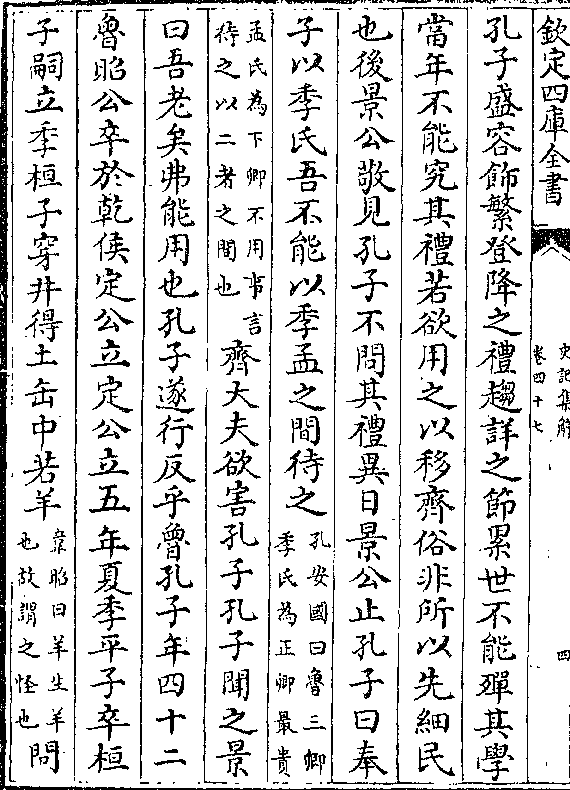 欽定四庫全書
史記集解
卷四十七
四
孔子盛容飾繁登降之禮趨詳之節累世不能殫其學
當年不能究其禮若欲用之以移齊俗非所以先細民
也後景公敬見孔子不問其禮異日景公止孔子曰奉
子以季氏吾不能以季孟之間待之
孔安國曰魯三卿
季氏為正卿最貴
孟氏為下卿不用事言
待之以二者之間也
齊大夫欲害孔子孔子聞之景
曰吾老矣弗能用也孔子遂行反乎魯孔子年四十二
魯昭公卒於乾侯定公立定公立五年夏季平子卒桓
子嗣立季桓子穿井得土缶中若羊
韋昭曰羊生羊
也故謂之怪也
問